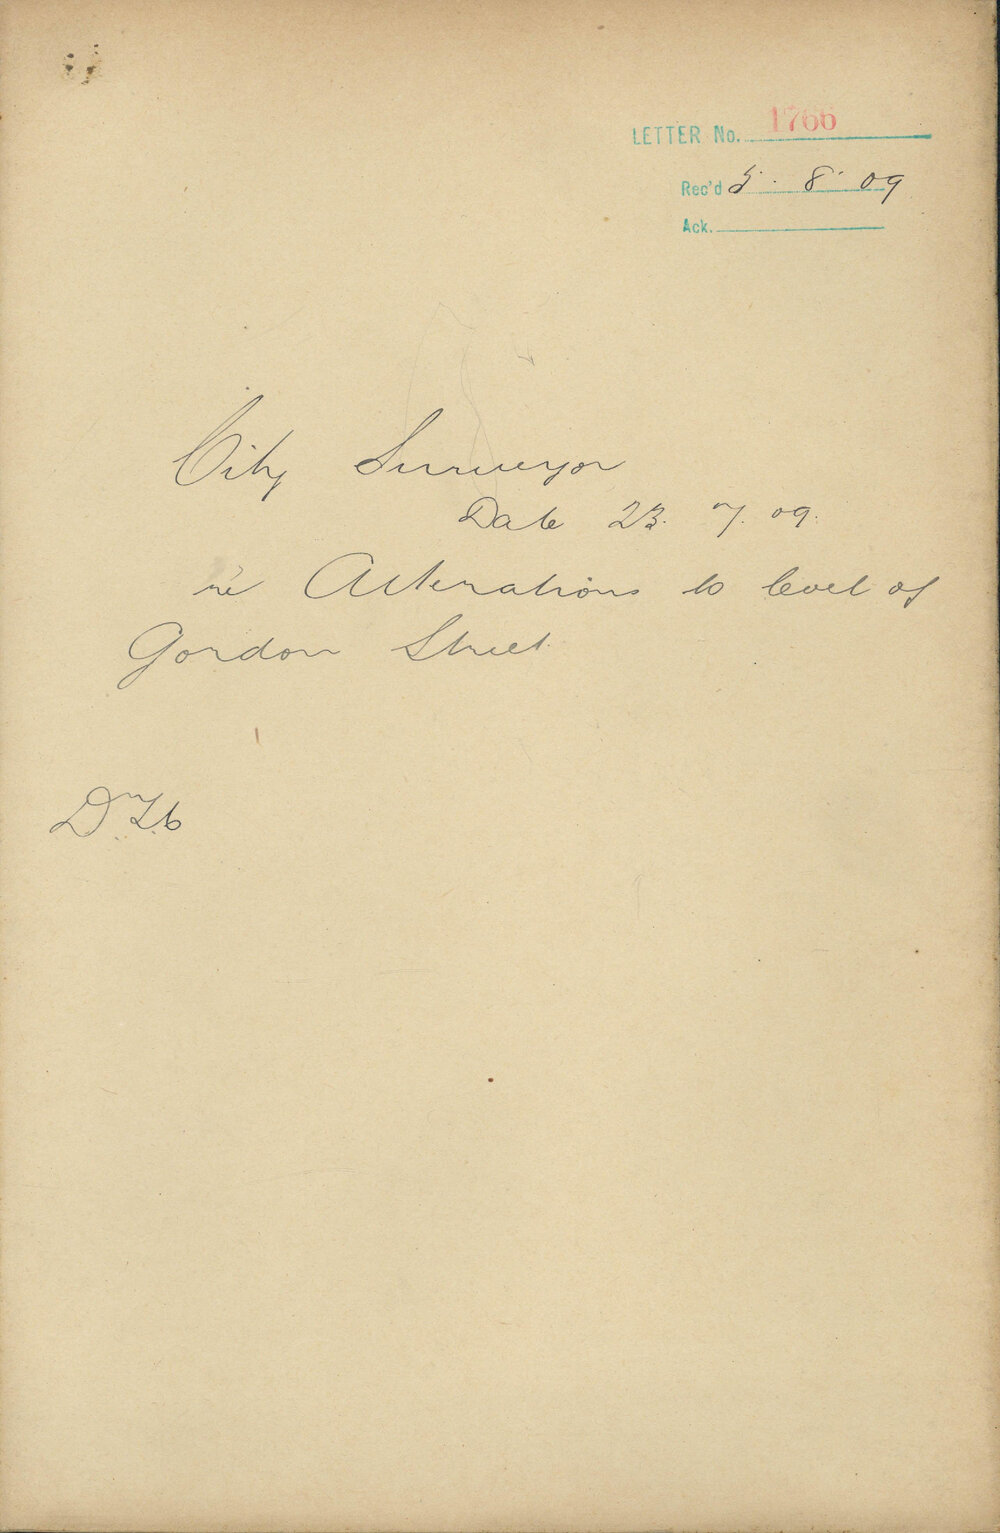 LETTER No. 1766
Rec'd 5. 8. 09
Ack.
City Surveyor
Date 23. 7. 09.
re Alterations to level of
Gordon Street